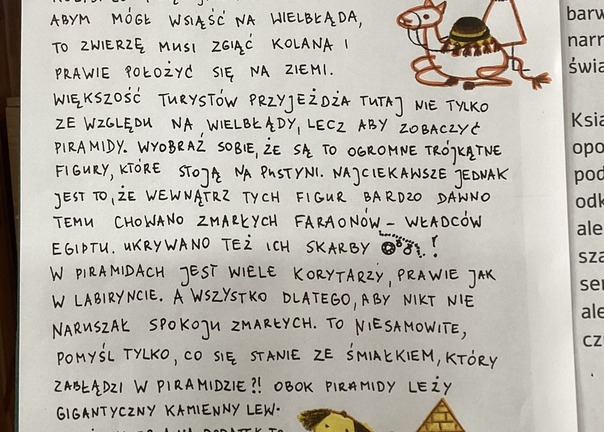 ABYM MÓGŁ WSIĄŚĆ NA WIELBŁĄDA,
TO ZWIERZĘ MUSI ZGIĄĆ KOLANA I
PRAWIE POŁOŻYĆ SIĘ NA ZIEMI.
WIĘKSZOŚĆ TURYSTÓW PRZYJEŻDŻA TUTAJ NIE TYLKO
ZE WZGLĘDU NA WIELBŁĄDY, LECZ ABY ZOBACZYĆ
PIRAMIDY. WYOBRAŹ SOBIE, ŻE SĄ TO OGROMNE TRÓJKĄTNE
FIGURY, KTÓRE STOJĄ NA PUSTYNI. NAJCIEKAWSZE JEDNAK
JEST TO, ŻE WEWNĄTRZ TYCH FIGUR BARDZO DAWNO
TEMU CHOWANO ZMARŁYCH FARAONÓW – WŁADCÓW
EGIPTU. UKRYWANO TEŻ ICH SKARBY !
W PIRAMIDACH JEST WIELE KORYTARZY, PRAWIE JAK
W LABIRYNCIE. A WSZYSTKO DLATEGO, ABY NIKT NIE
NARUSZAŁ SPOKOJU ZMARŁYCH. TO NIESAMOWITE,
POMYŚL TYLKO, CO SIĘ STANIE ZE ŚMIAŁKIEM, KTÓRY
ZABŁĄDZI W PIRAMIDZIE?! OBOK PIRAMIDY LEŻY
GIGANTYCZNY KAMIENNY LEW.
barw
narr
świa
Ksią
opo
pod
odk
ale
sza
ser
ale
cz